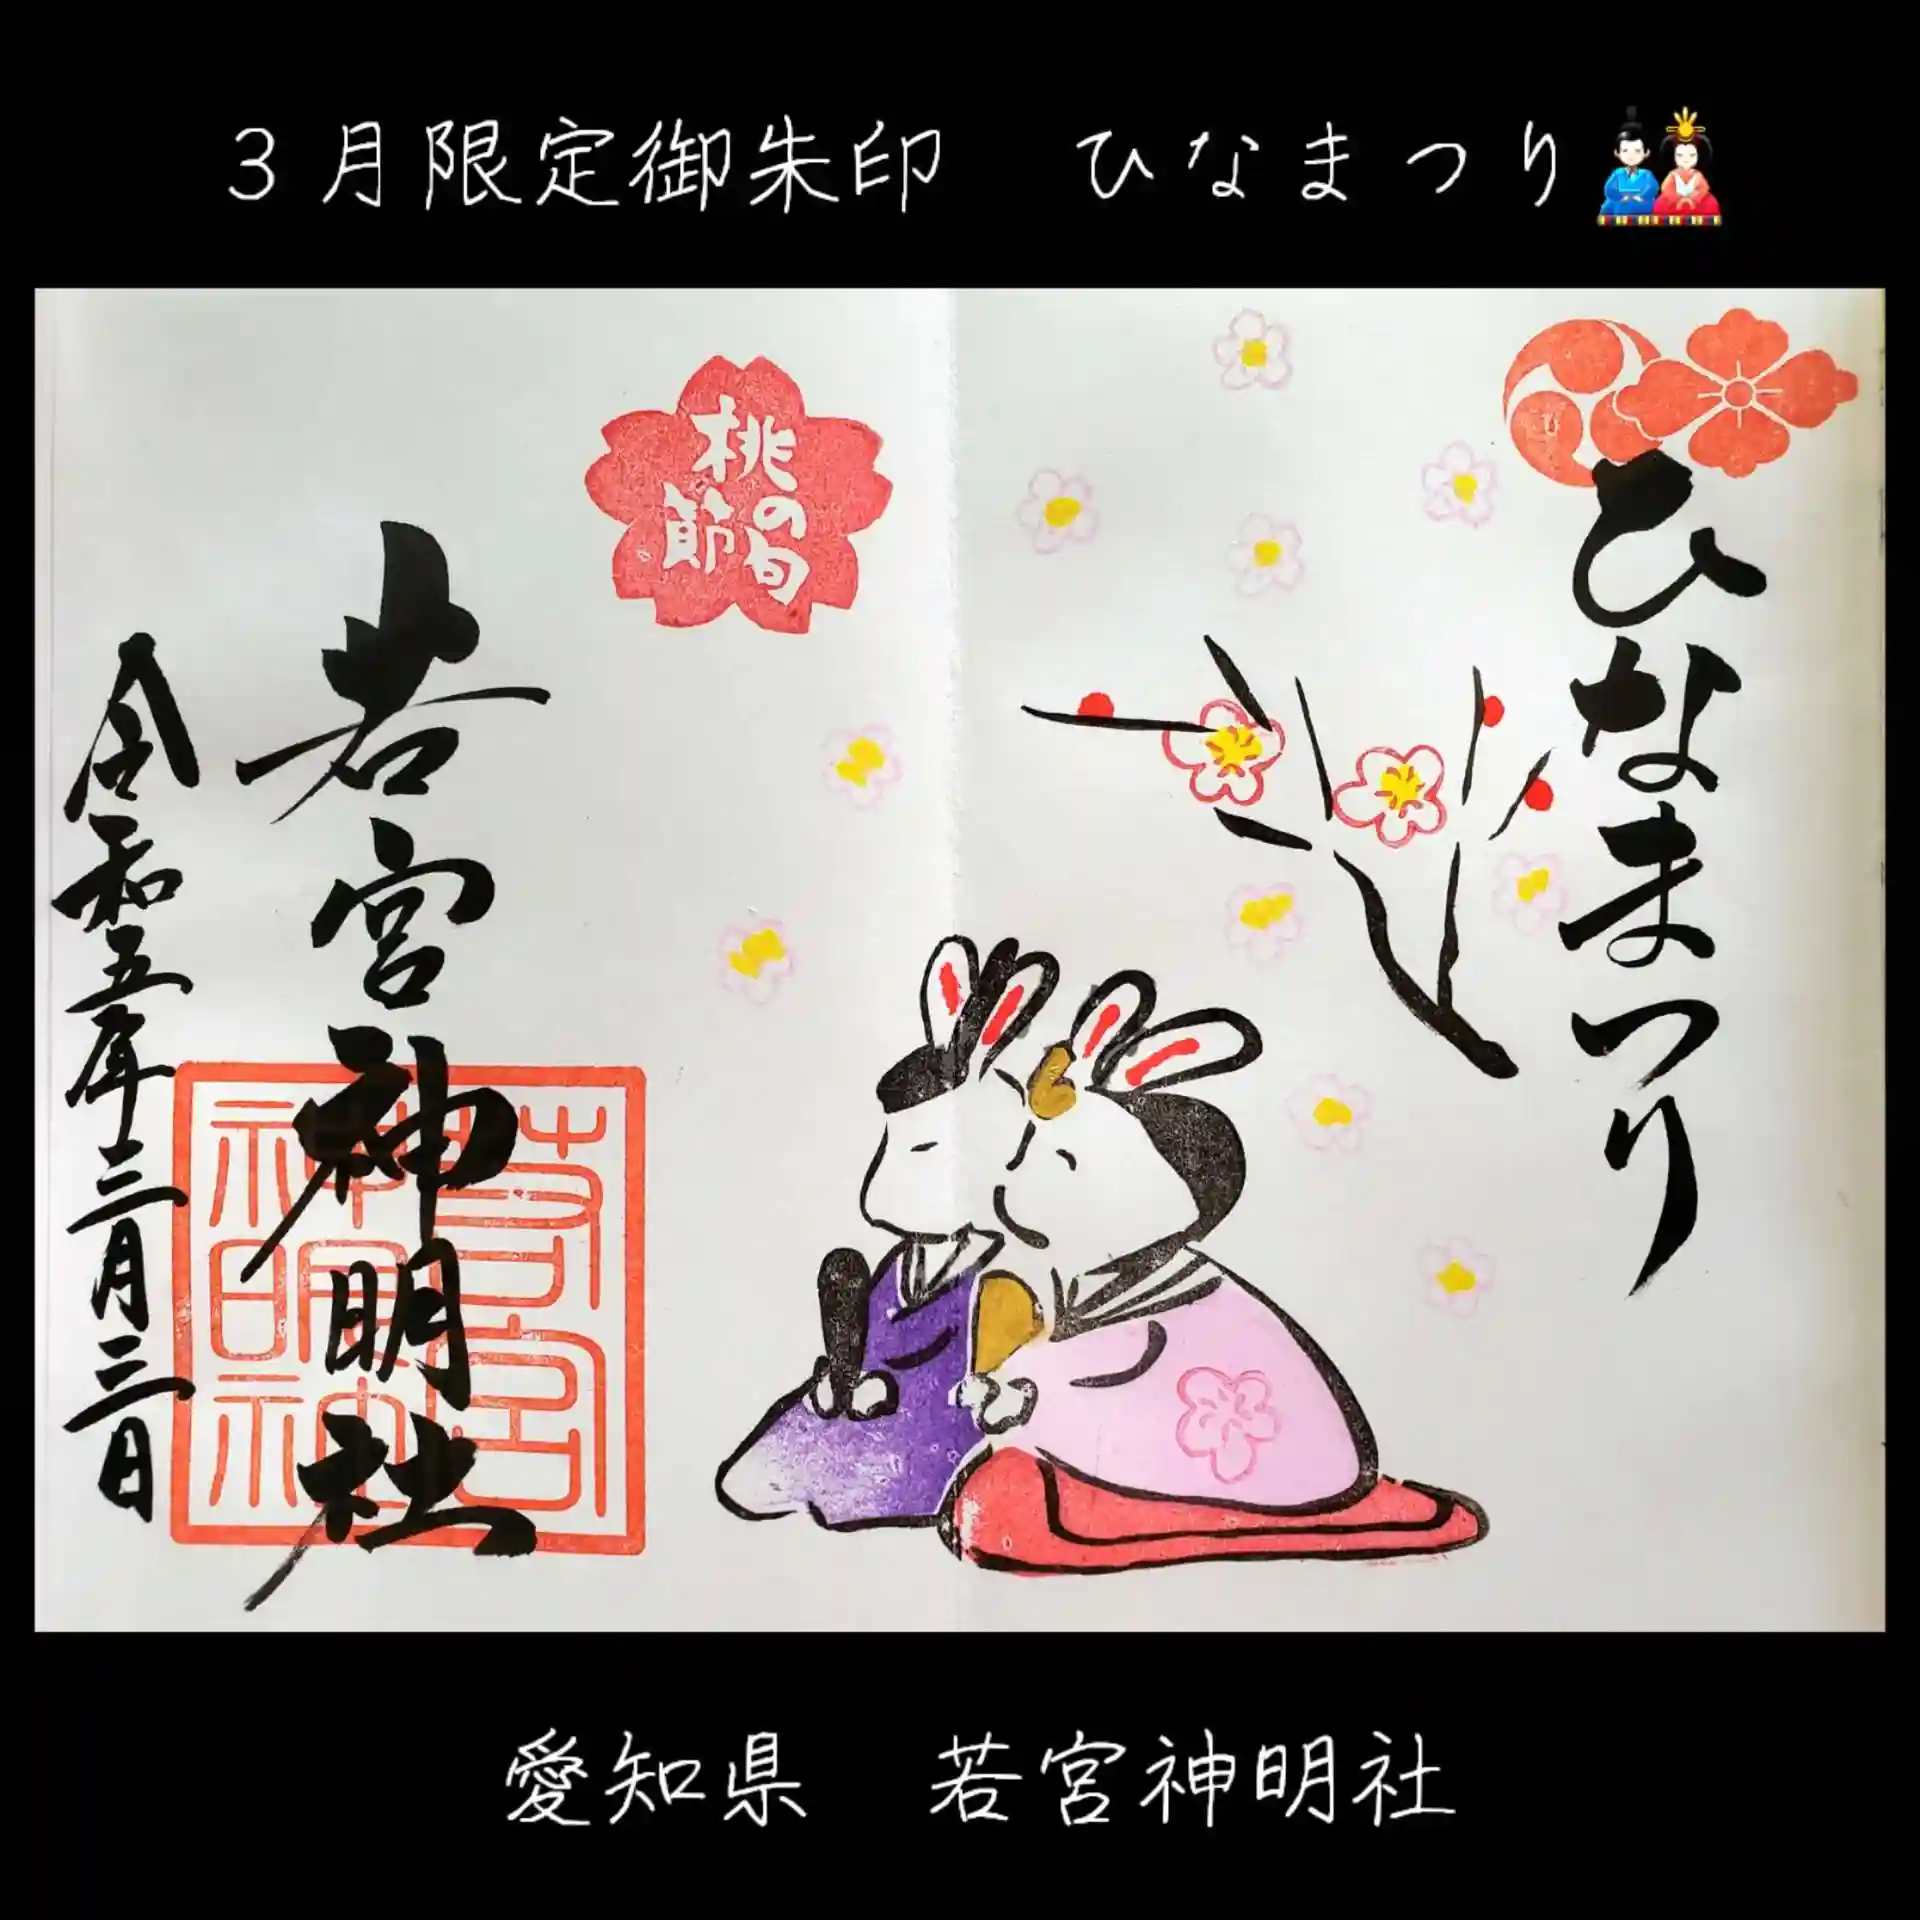 3月限定御朱印　ひなまつり
ひなまつり
桃の
節句
若宮神明社
令和五年三月三日
若宮
神明社
愛知県　若宮神明社